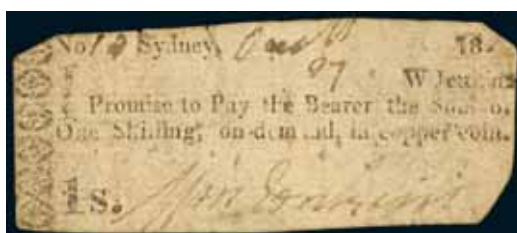 No 12 Sydney, 18
W Jenkins
Promise to Pay the Bearer the Sum of
One Shilling, on demand, in copper coin.
1 S.